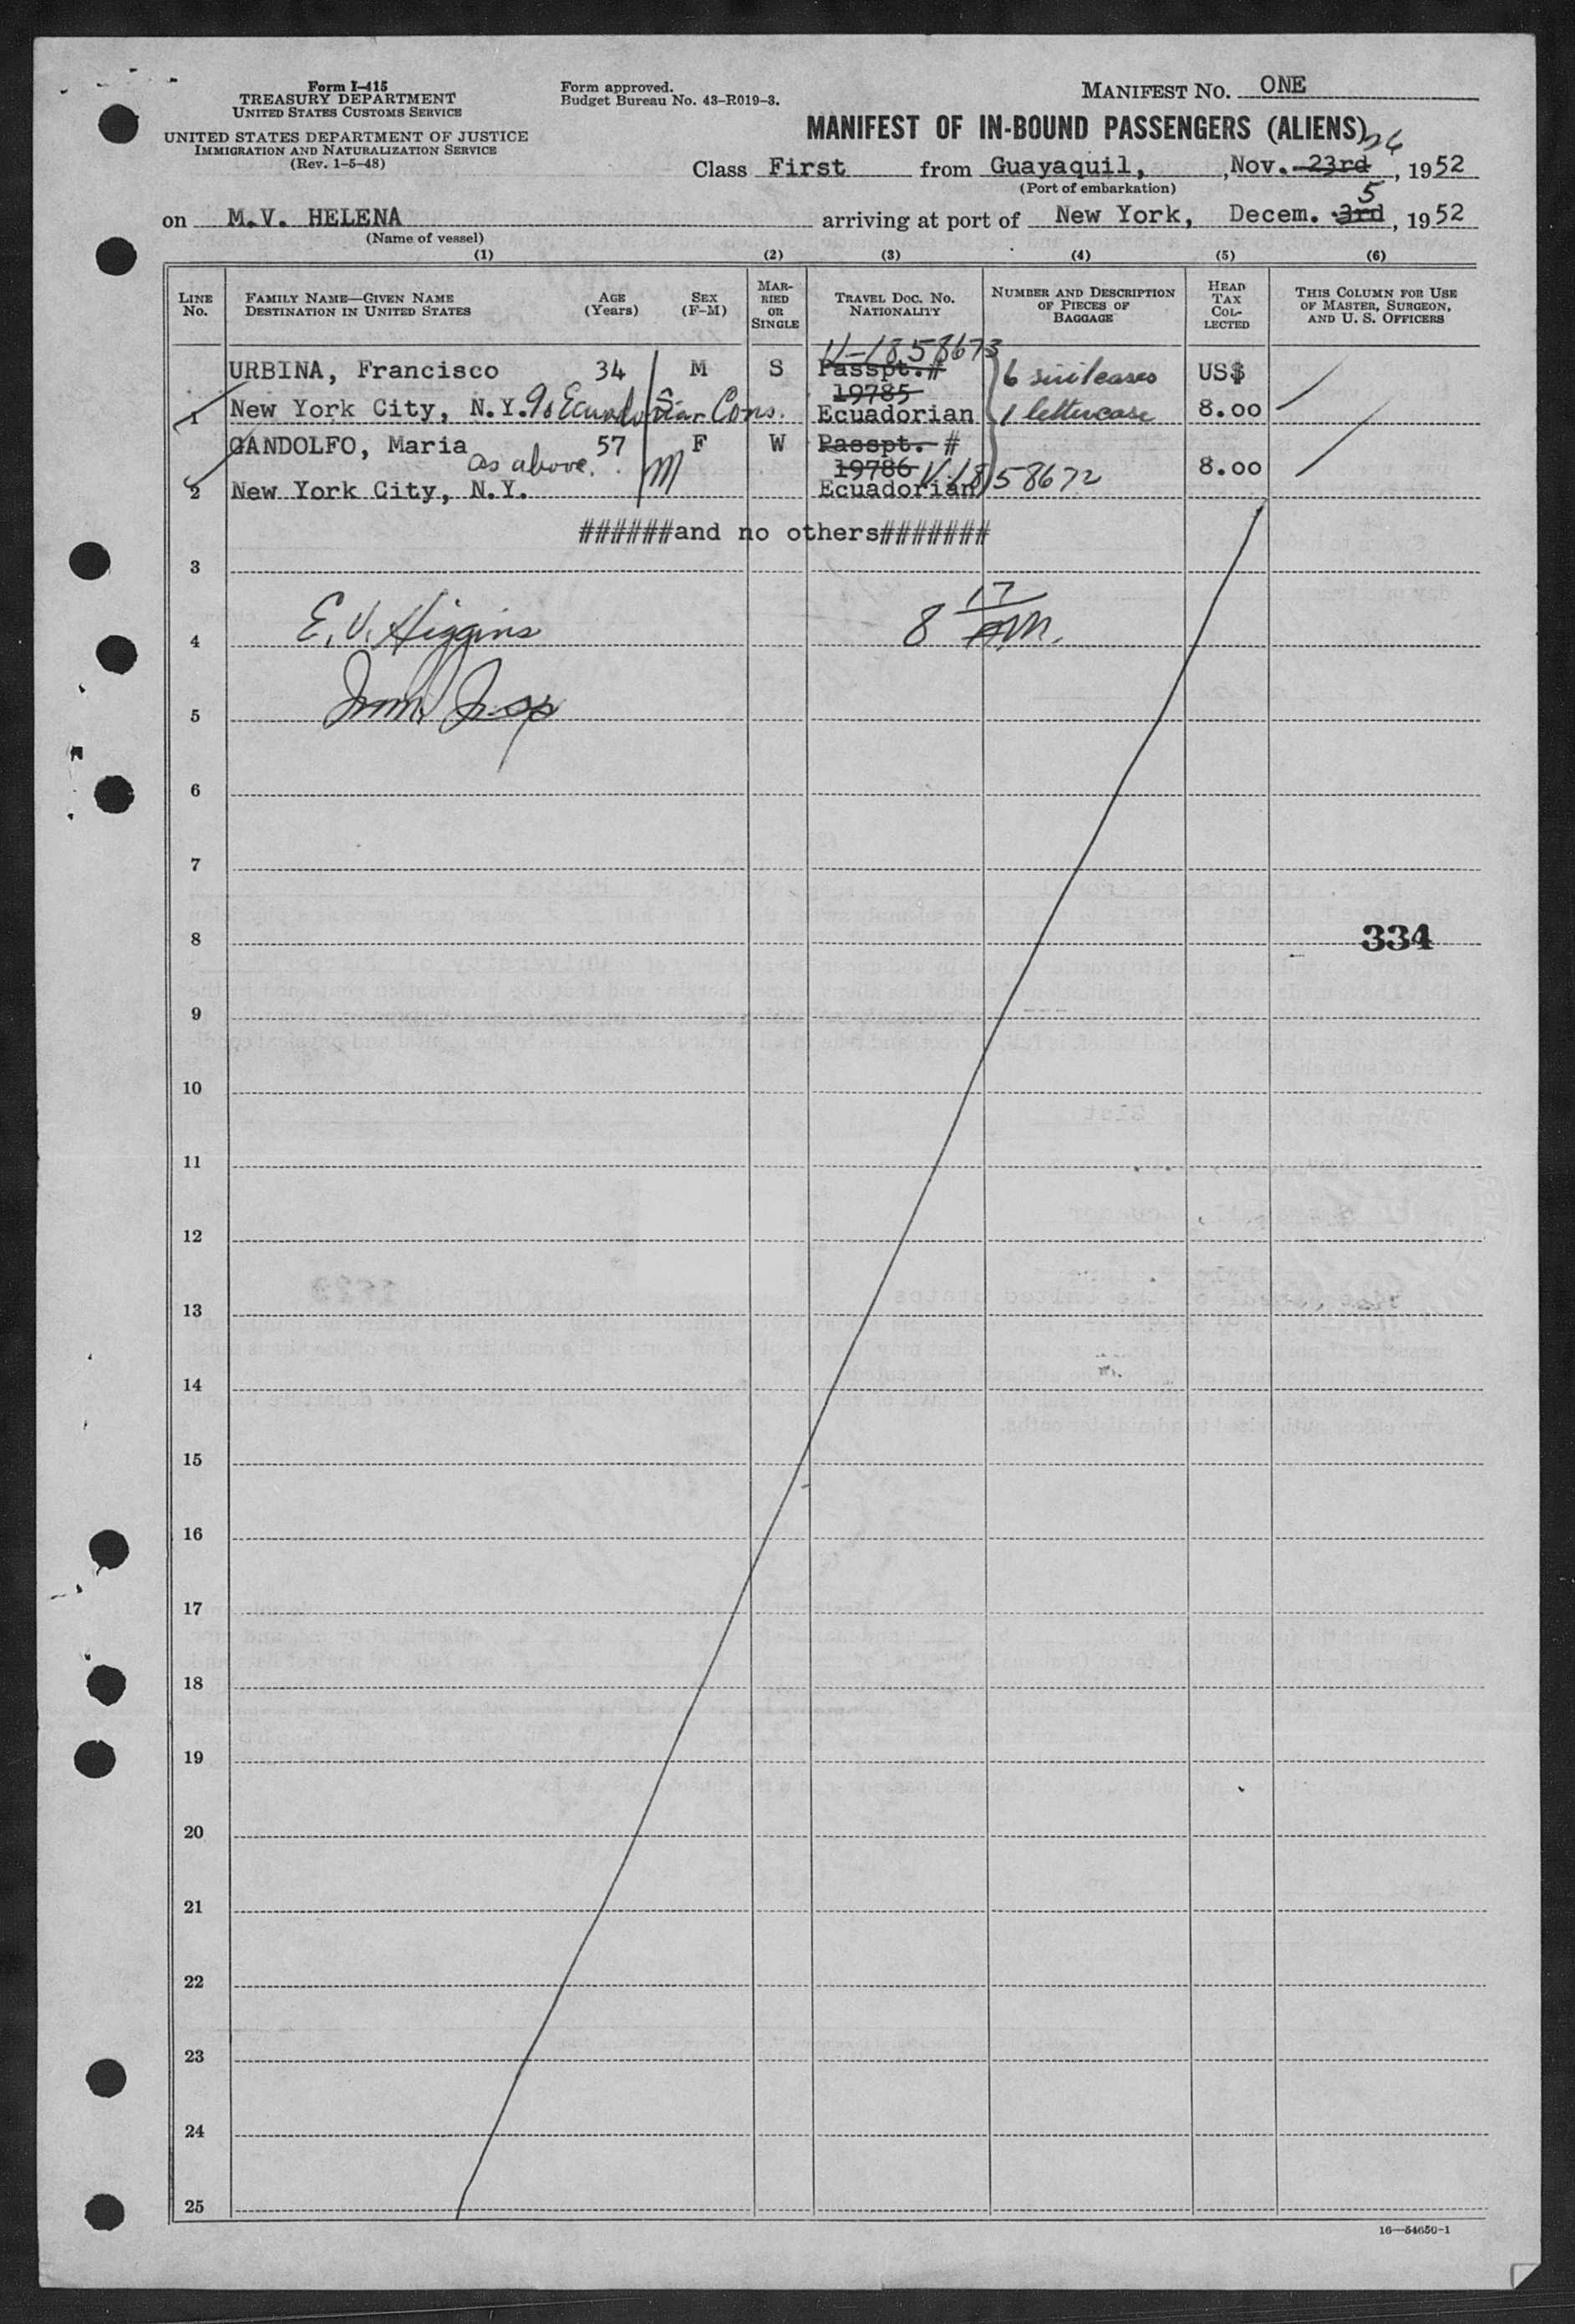 Form I-415
TREASURY DEPARTMENT
UNITED STATES CUSTOMS SERVICE
UNITED STATES DEPARTMENT OF JUSTICE
IMMIGRATION AND NATURALIZATION SERVICE
(Rev. 1-5-48)
Form approved.
Budget Bureau No. 43-R019-3.
MANIFEST NO. ONE
MANIFEST OF IN-BOUND PASSENGERS (ALIENS)
26
Class First from Guayaquil, , Nov. 23rd, 1952
(Port of embarkation)
5
on M.V. HELENA arriving at port of New York, Decem. 3rd, 1952
(Name of vessel)
(1) (2) (3) (4) (5) (6)
LINE No.
FAMILY NAME—GIVEN NAME
DESTINATION IN UNITED STATES
AGE (Years)
SEX (F-M)
MARRIED OR SINGLE
TRAVEL DOC. NO. NATIONALITY
NUMBER AND DESCRIPTION OF PIECES OF BAGGAGE
HEAD TAX COLLECTED
THIS COLUMN FOR USE OF MASTER, SURGEON, AND U. S. OFFICERS
V-1858673
URBINA, Francisco 34 M S Passpt.# 6 suitcases US$
19785
1 New York City, N.Y. % Ecuadorian Cons. Ecuadorian 1 lettercase 8.00
GANDOLFO, Maria 57 F W Passpt. #
as above. M 19786 V-1858672 8.00
2 New York City, N.Y. Ecuadorian
######and no others#######
3
E. V. Higgins 8 17 AM.
4
Imm. Insp
5
6
7
8 334
9
10
11
12
13
14
15
16
17
18
19
20
21
22
23
24
25
16—54650-1